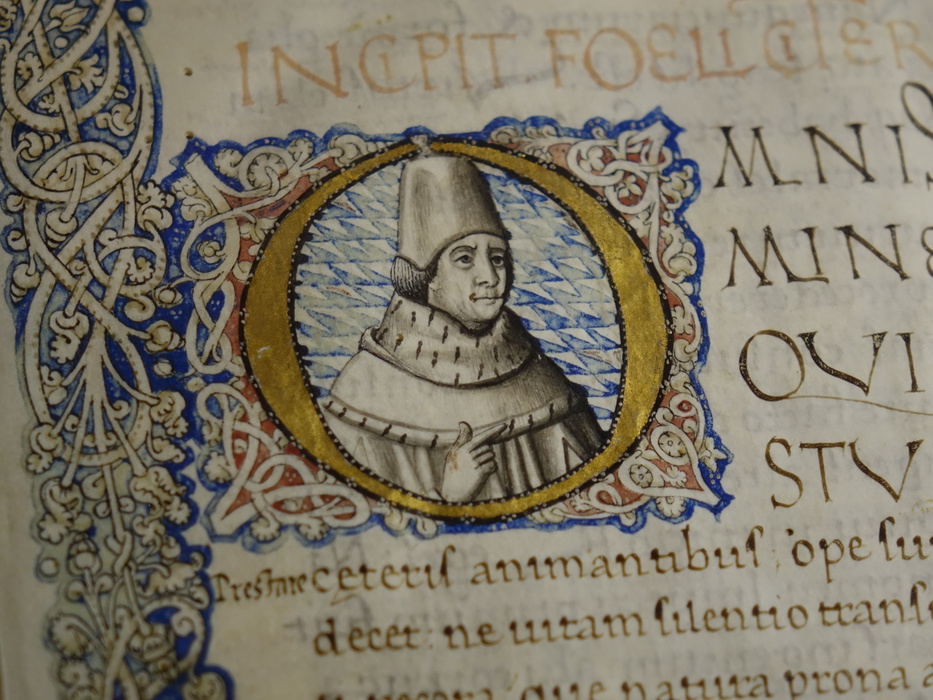 INCIPIT FOELICITER
OMNIS
MINE
QVI
STV
Prestare ceteris animantibus, ope su
decet: ne uitam silentio trans
pecora, que natura prona a